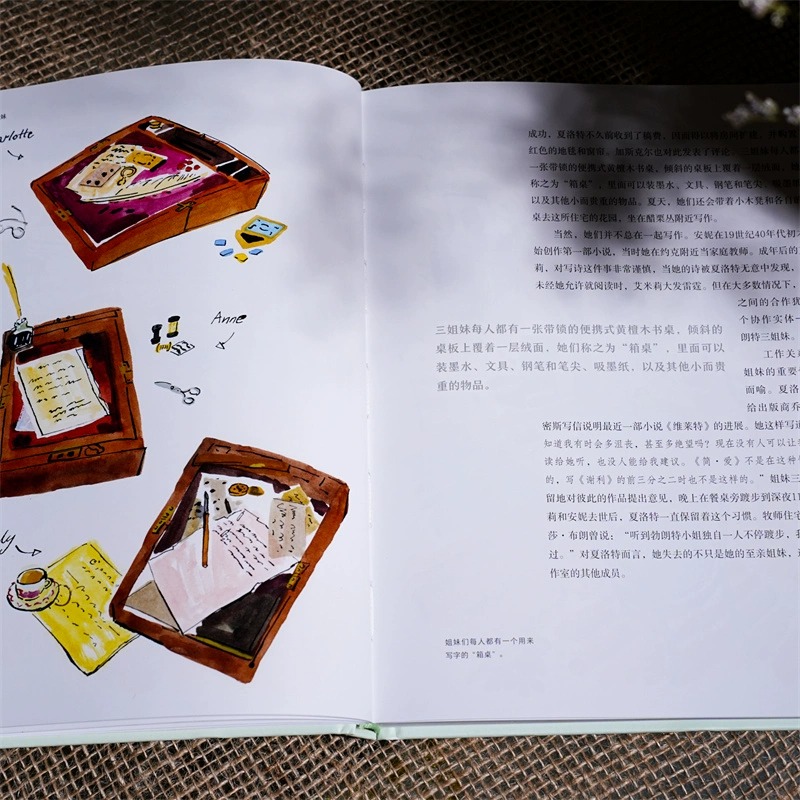 妹
arlotte
Anne
ly
成功，夏洛特不久前收到了稿费，因而得以将房间扩建，并购置
红色的地毯和窗帘。加斯克尔也对此发表了评论。三姐妹每人都
一张带锁的便携式黄檀木书桌，倾斜的桌板上覆着一层绒面，她
称之为“箱桌”，里面可以装墨水、文具、钢笔和笔尖、吸墨
以及其他小而贵重的物品。夏天，她们还会带着小木凳和各自的
桌去这所住宅的花园，坐在醋栗丛附近写作。
当然，她们并不总在一起写作。安妮在19世纪40年代初
始创作第一部小说，当时她在约克附近当家庭教师。成年后的
莉，对写诗这件事非常谨慎，当她的诗被夏洛特无意中发现，
未经她允许就阅读时，艾米莉大发雷霆。但在大多数情况下，
之间的合作犹
个协作实体一
朗特三姐妹。
工作关
姐妹的重要
而喻。夏洛
给出版商乔
三姐妹每人都有一张带锁的便携式黄檀木书桌，倾斜的
桌板上覆着一层绒面，她们称之为“箱桌”，里面可以
装墨水、文具、钢笔和笔尖、吸墨纸，以及其他小而贵
重的物品。
密斯写信说明最近一部小说《维莱特》的进展。她这样写道
知道我有时会多沮丧，甚至多绝望吗？现在没有人可以让我
读给她听，也没人能给我建议。《简·爱》不是在这种
的，写《谢利》的前三分之二时也不是这样的。”姐妹三
留地对彼此的作品提出意见，晚上在餐桌旁踱步到深夜11
莉和安妮去世后，夏洛特一直保留着这个习惯。牧师住宅
莎·布朗曾说：“听到勃朗特小姐独自一人不停踱步，我
过。”对夏洛特而言，她失去的不只是她的至亲姐妹，还
作室的其他成员。
姐妹们每人都有一个用来
写字的“箱桌”。